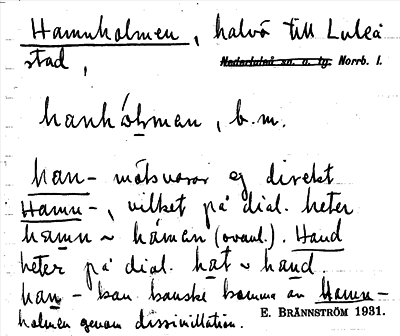 Hamnholmen, halvö till Luleå
stad,
Nederluleå sn. o. tg. Norrb. l.
hanhólman, b.m.
han- motsvarar ej direkt
Hamn-, vilket på dial. heter
hamn ~ hámen (ovanl.). Hand
heter på dial. hat ~ hand.
han- kan kanske komma av Hamn-
holmen genom dissimillation. E. BRÄNNSTRÖM 1931.